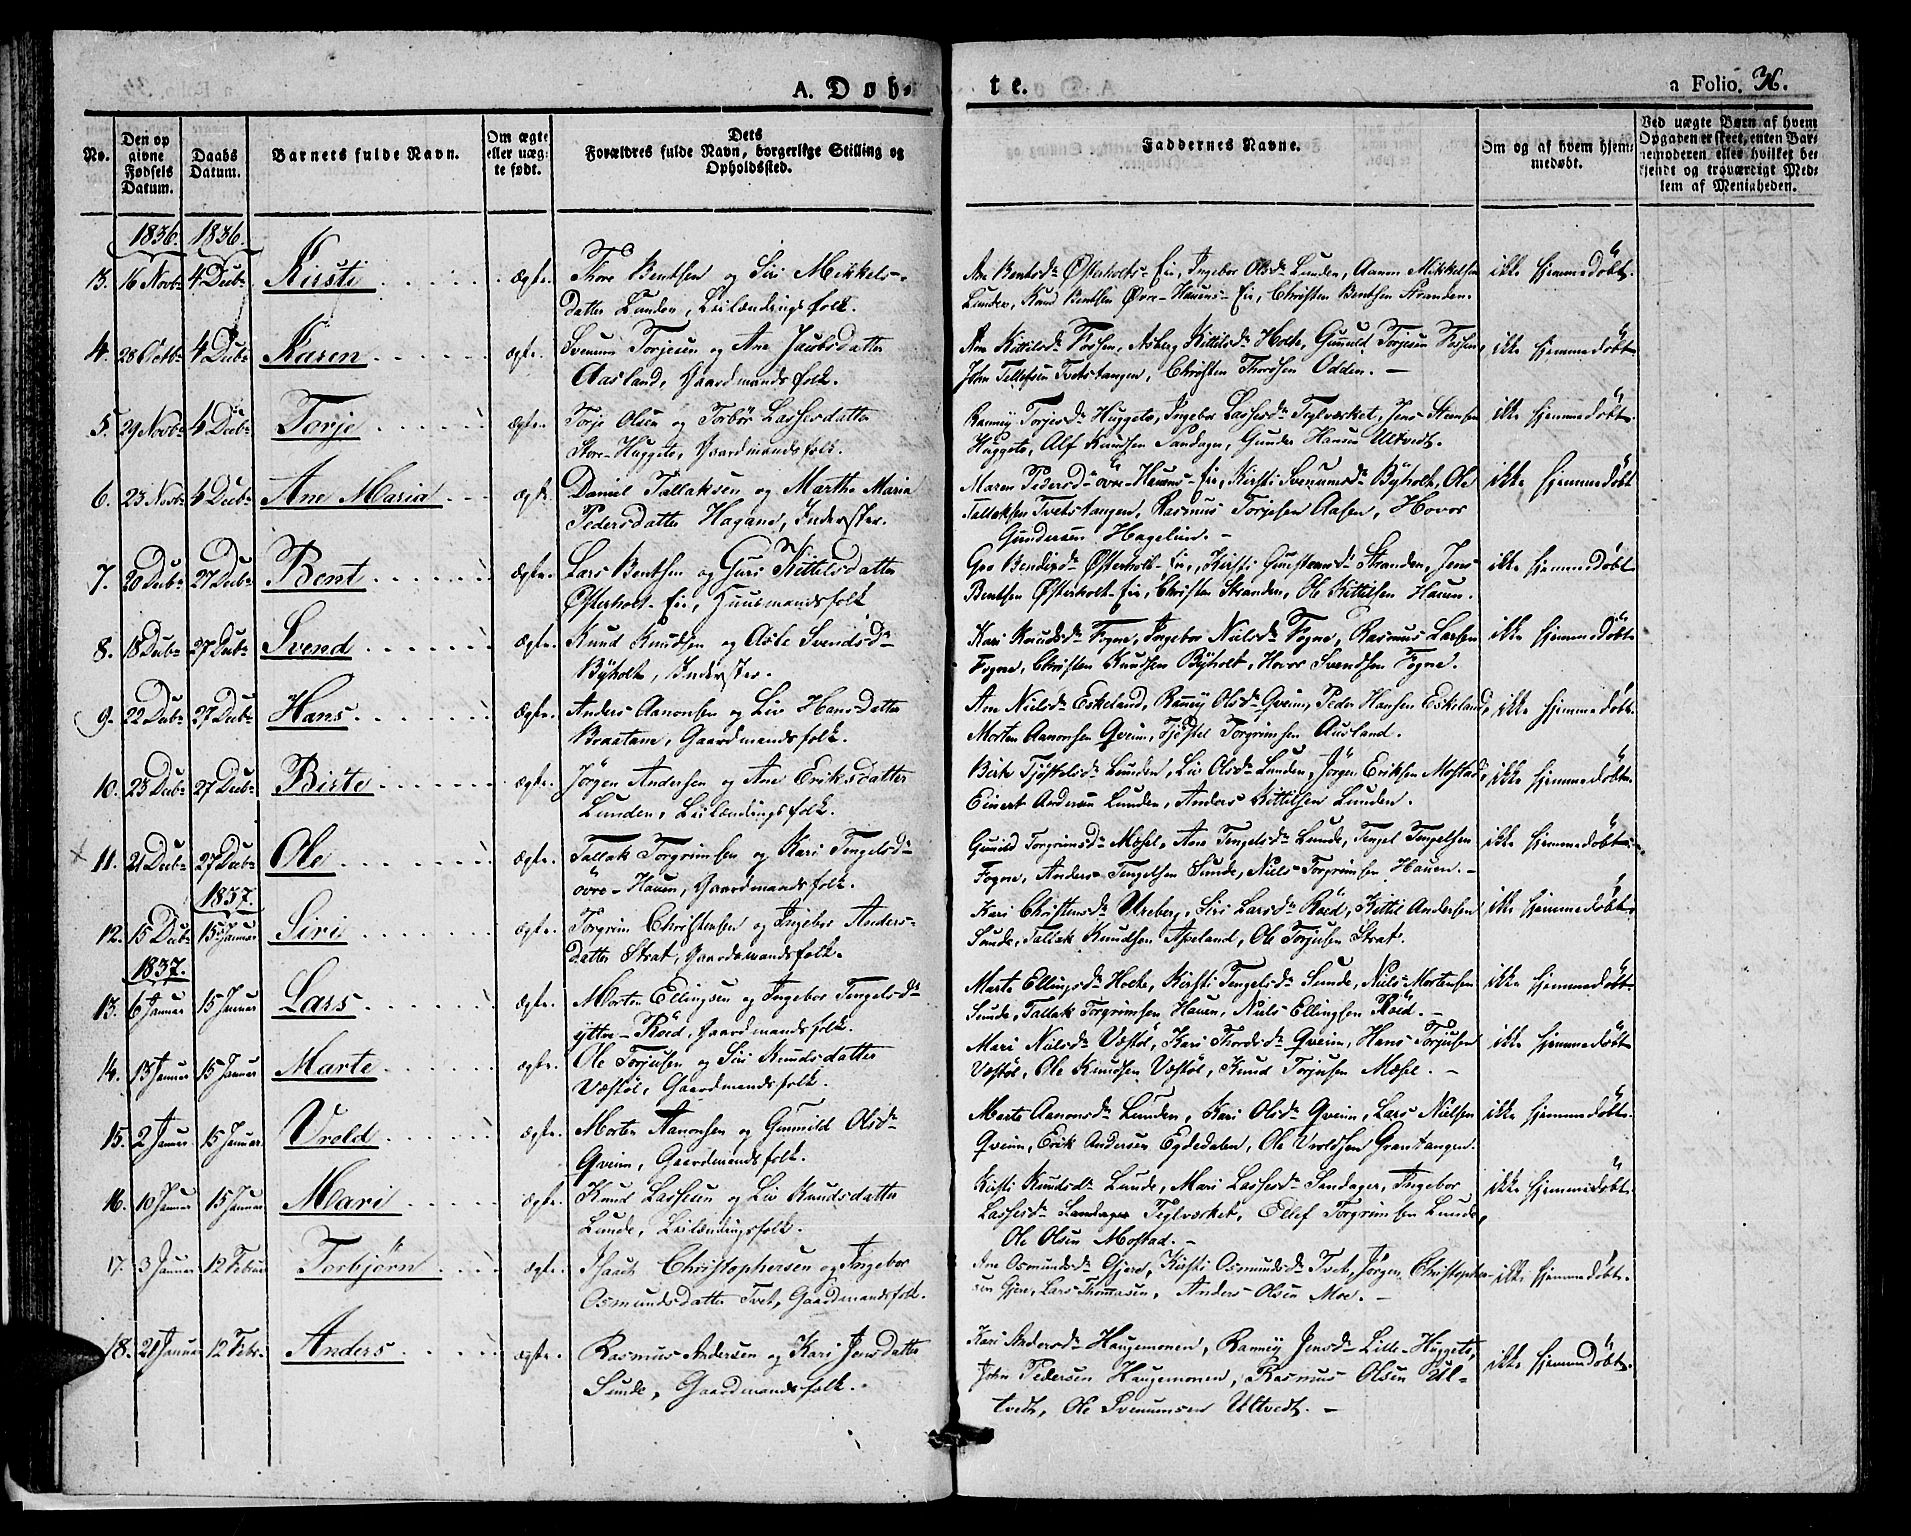 A. Døb-
te.
a Folio. 36.
No.
Den op
givne
Fødsels
Datum.
Daabs
Datum.
Barnets fulde Navn.
Om ægte
eller uæg-
te født.
Dets
Forældres fulde Navn, borgerlige Stilling og
Opholdssted.
Faddernes Navne.
Om og af hvem hjem-
medøbt.
Ved uægte Børn af hvem
Opgaven er skeet, enten Bar-
nemoderen eller hvilket be-
kjendt og troværdigt Med-
lem af Menigheden.
1836. 1836.
3. 16 Novbr 4 Decbr Kirsti ægte. Thore Bentsen og Siri Mikkels-
datter Lunden, Leilændingsfolk.
Ane Bentsdr Østerholts-Eie, Ingebor Olsdr Lunden, Aanon Mikkelsen
Lunden, Knud Bentsen Øvre-Hauens-Eie, Christen Bentsen Stranden.
ikke hjemmedøbt.
4. 28 Octbr 4 Decbr Karen ægte. Svenum Torjesen og Ane Jacobsdatter
Aasland, Gaardmandsfolk.
Ane Kittilsdr Fossen, Asberg Kittilsdr Holte, Gunuld Torjesen Fossen,
John Tellefsen Tvetstangen, Christen Thorsen Odden. -
ikke hjemmedøbt
5. 29 Novbr 4 Decbr Torje ægte. Torje Olsen og Torbør Lassesdatter
Store-Huggeto, Gaardmandsfolk.
Ranney Torjesdr Huggeto, Ingebor Lassesdr Teglværket, Jens Steensen
Huggeto, Alf Knudsen Sandager, Gunder Hansen Ultvedt.
ikke hjemmedøbt
6. 23 Novbr 4 Decbr Ane Maria ægte. Daniel Tallaksen og Marthe Maria
Pedersdatter Hagane, Inderster.
Maren Pedersd øvre-Hauens-Eie, Kirsti Svenumsdr Byholt, Ole
Tallaksen Tvetstangen, Rasmus Torjesen Aasen, Hovor
Gundersen Hagelien. -
ikke hjemmedøbt
7. 20 Decbr 27 Decbr Bent ægte. Lars Bentsen og Guri Kittilsdatter
Østerholt-Eie, Huusmandsfolk
Gro Bendixdr Østerholt-Eie, Kirsti Stranden, Jens
Bentsen Østerholt-Eie, Christen Stranden, Ole Kittilsen Hauen.
ikke hjemmedøbt
8. 18 Decbr 27 Decbr Svend ægte. Knud Knudsen og Aste Svendsdr
Byholt, Inderster.
Kari Knudsdr Fogne, Ingebor Nielsdr Fogne, Rasmus Larsen
Fogne, Christen Knudsen Byholt, Hovor Svendsen Fogne.
ikke hjemmedøbt
9. 22 Decbr 27 Decbr Hans ægte. Anders Aanonsen og Liv Hansdatter
Braatane, Gaardmandsfolk.
Ane Nielsdr Eskeland, Ranney Olsdr Qveim, Peder Hansen Eskeland,
Morten Aanonsen Qveim, Tjøstel Torgrimsen Ausland.
ikke hjemmedøbt.
10. 25 Decbr 27 Decbr Birte ægte. Jørgen Andersen og Ane Eriksdatter
Lunden, Leilændingsfolk.
Birte Tjøstelsdr Lunden, Liv Olsdr Lunden, Jørgen Eriksen Mostad,
Einert Andersen Lunden, Anders Kittilsen Lunden.
ikke hjemmedøbt
11. 21 Decbr 27 Decbr Ole ægte. Tallak Torgrimsen og Kari Tengelsdr
øvre-Hauen, Gaardmandsfolk.
Gunild Torgrimsdr Mæsel, Ane Tengelsdr Lunde, Tengel Tengelsen
Fogne, Anders Tengelsen Sunde, Niels Torgrimsen Hauen. -
ikke hjemmedøbt.
1837.
12. 15 Decbr 15 Januar Siri ægte. Torgrim Christensen og Ingebor Anders-
datter Strat, Gaardmandsfolk.
Kari Christensdr Ureberg, Siri Larsdr Røed, Kittil Andersen
Sunde, Tallak Knudsen Apeland, Ole Torjusen Strat.
ikke hjemmedøbt
1837.
13. 6 Januar 15 Januar Lars ægte. Morten Ellingsen og Ingebor Tengelsdr
yttre-Røed, Gaardmandsfolk.
Marte Ellingsdr Holte, Kirsti Tengelsdr Sunde, Niels Mortensen
Sunde, Tallak Torgrimsen Hauen, Niels Ellingsen Røed. -
ikke hjemmedøbt.
14. 13 Januar 15 Januar Marte ægte. Ole Torjusen og Siri Knudsdatter
Væstøl, Gaardmandsfolk.
Mari Nielsdr Væstøl, Kari Thordsdr Qveim, Hans Torjusen
Væstøl, Ole Knudsen Væstøl, Knud Torjusen Mæsel. -
ikke hjemmedøbt
15. 2 Januar 15 Januar. Vrold ægte. Morten Aanonsen og Gunuld Olsdr
Qveim, Gaardmandsfolk.
Marte Aanonsdr Lunden, Kari Olsdr Qveim, Lars Nielsen
Qveim, Erik Andersen Egdedalen, Ole Vroldsen Grantangen.
ikke hjemmedøbt.
16. 10 Januar 15 Januar Mari ægte. Knud Lassesen og Liv Knudsdatter
Lunde, Leilændingsfolk.
Kirsti Knudsdr Lunde, Mari Lassesdr Sandager, Ingebor
Lassesdr Sandager Teglværket, Ellef Torgrimsen Lunde,
Ole Olsen Mostad. -
ikke hjemmedøbt.
17. 3 Januar 12 Februar Torbjørn ægte. Isach Christophersen og Ingebor
Osmundsdatter Tvet, Gaardmandsfolk.
Ane Osmundsdr Gjere, Kirsti Osmundsdr Tvet, Jørgen Christopher-
sen Gjere, Lars Thomasen, Anders Olsen Moe. -
ikke hjemmedøbt.
18. 21 Januar 12 Febr. Anders ægte. Rasmus Andersen og Kari Jensdatter
Sunde, Gaardmandsfolk.
Kari Andersdr Haugemonen, Ranney Jensdr Lille-Huggeto,
John Pedersen Haugemonen, Rasmus Olsen Ul-
tvedt, Ole Svenumsen Ultvedt. -
ikke hjemmedøbt.